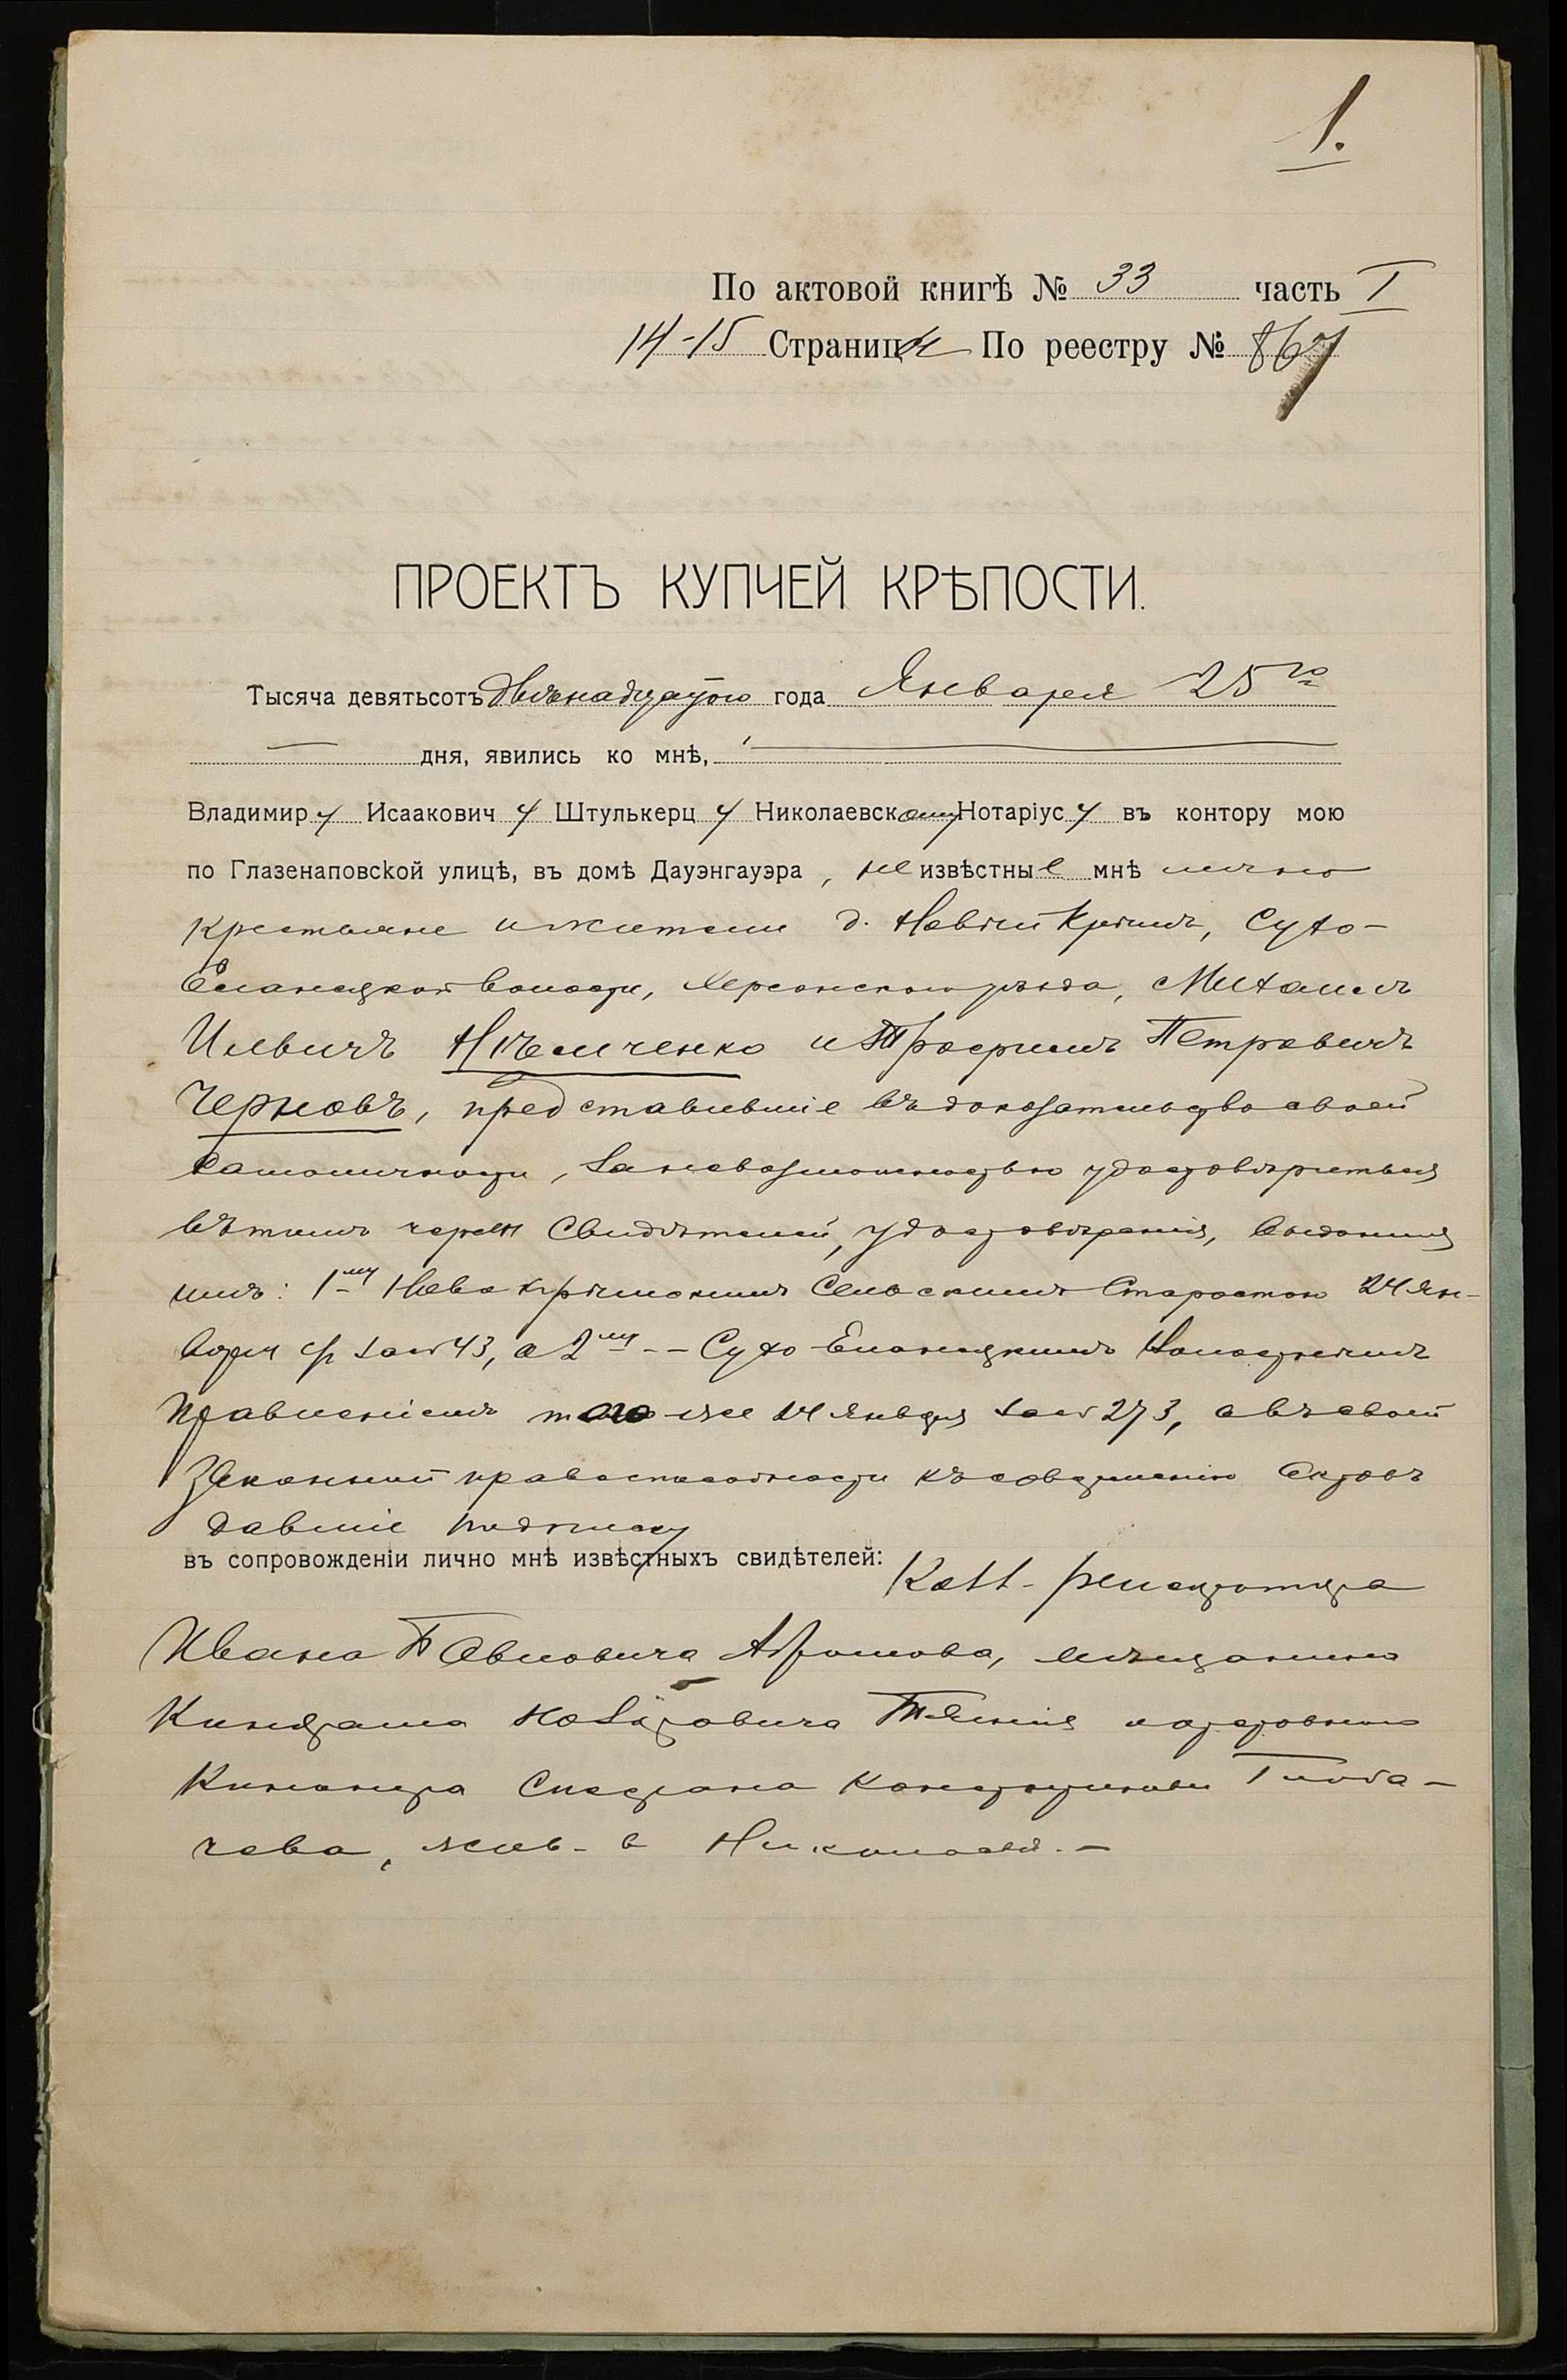 1.
По актовой книгѣ № 33 часть I
14-15 Страницы По реестру № 867
ПРОЕКТЪ КУПЧЕЙ КРѢПОСТИ.
Тысяча девятьсотъ двѣнадцатого года Января 25го
дня, явились ко мнѣ,
Владимиру Исааковичу Штулькерцу Николаевскому Нотаріусу въ контору мою
по Глазенаповской улицѣ, въ домѣ Дауэнгауэра, неизвѣстные мнѣ лично
крестьяне и жители д. Новый Крымъ, Сухо-
Еланецкой волости, Херсонского уѣзда, Михаилъ
Ильичъ Нѣмченко и Трофимъ Петровичъ
Черновъ, представившіе въ доказательство своей
самоличности, за невозможностью удостовѣриться
въ томъ черезъ свидѣтелей, удостовѣренія, выданныя
имъ: 1му Новокрымскимъ Сельскимъ Старостою 24 Ян-
варя за № 43, а 2му -- Сухо Еланецкимъ Волостнымъ
Правленіемъ того же 24 Января за № 273, о въ своей
законной правоспособности къ совершенію актовъ
давшіе подписку
въ сопровожденіи лично мнѣ извѣстныхъ свидѣтелей: Колл. регистратора
Ивана Павловича Абрамова, мѣщанина
Киндрата
Степана Константинова
чева, жив. в Николаевѣ. —